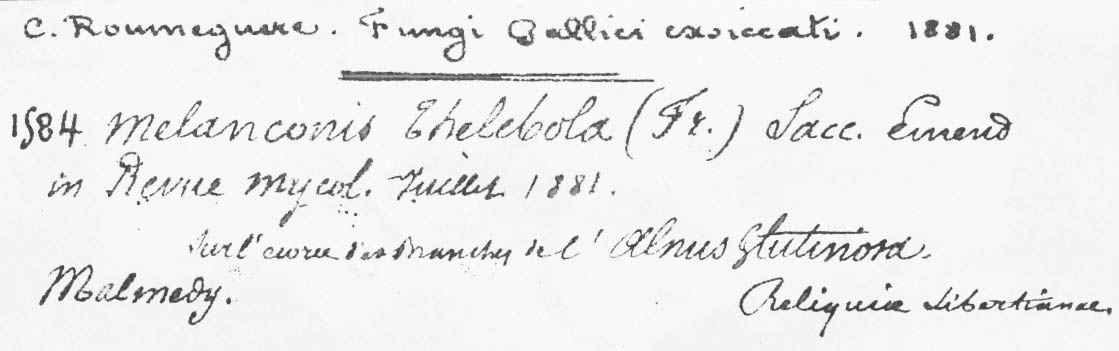 C. Roumeguere. Fungi Gallici exsiccati. 1881.
1584 Melanconis Thelebola (Fr.) Sacc. Emend
in Revue Mycol. Juillet 1881.
Sur l'ecorce des branches de l' Alnus Glutinosa.
Malmedy.
Reliquiæ Libertianae.